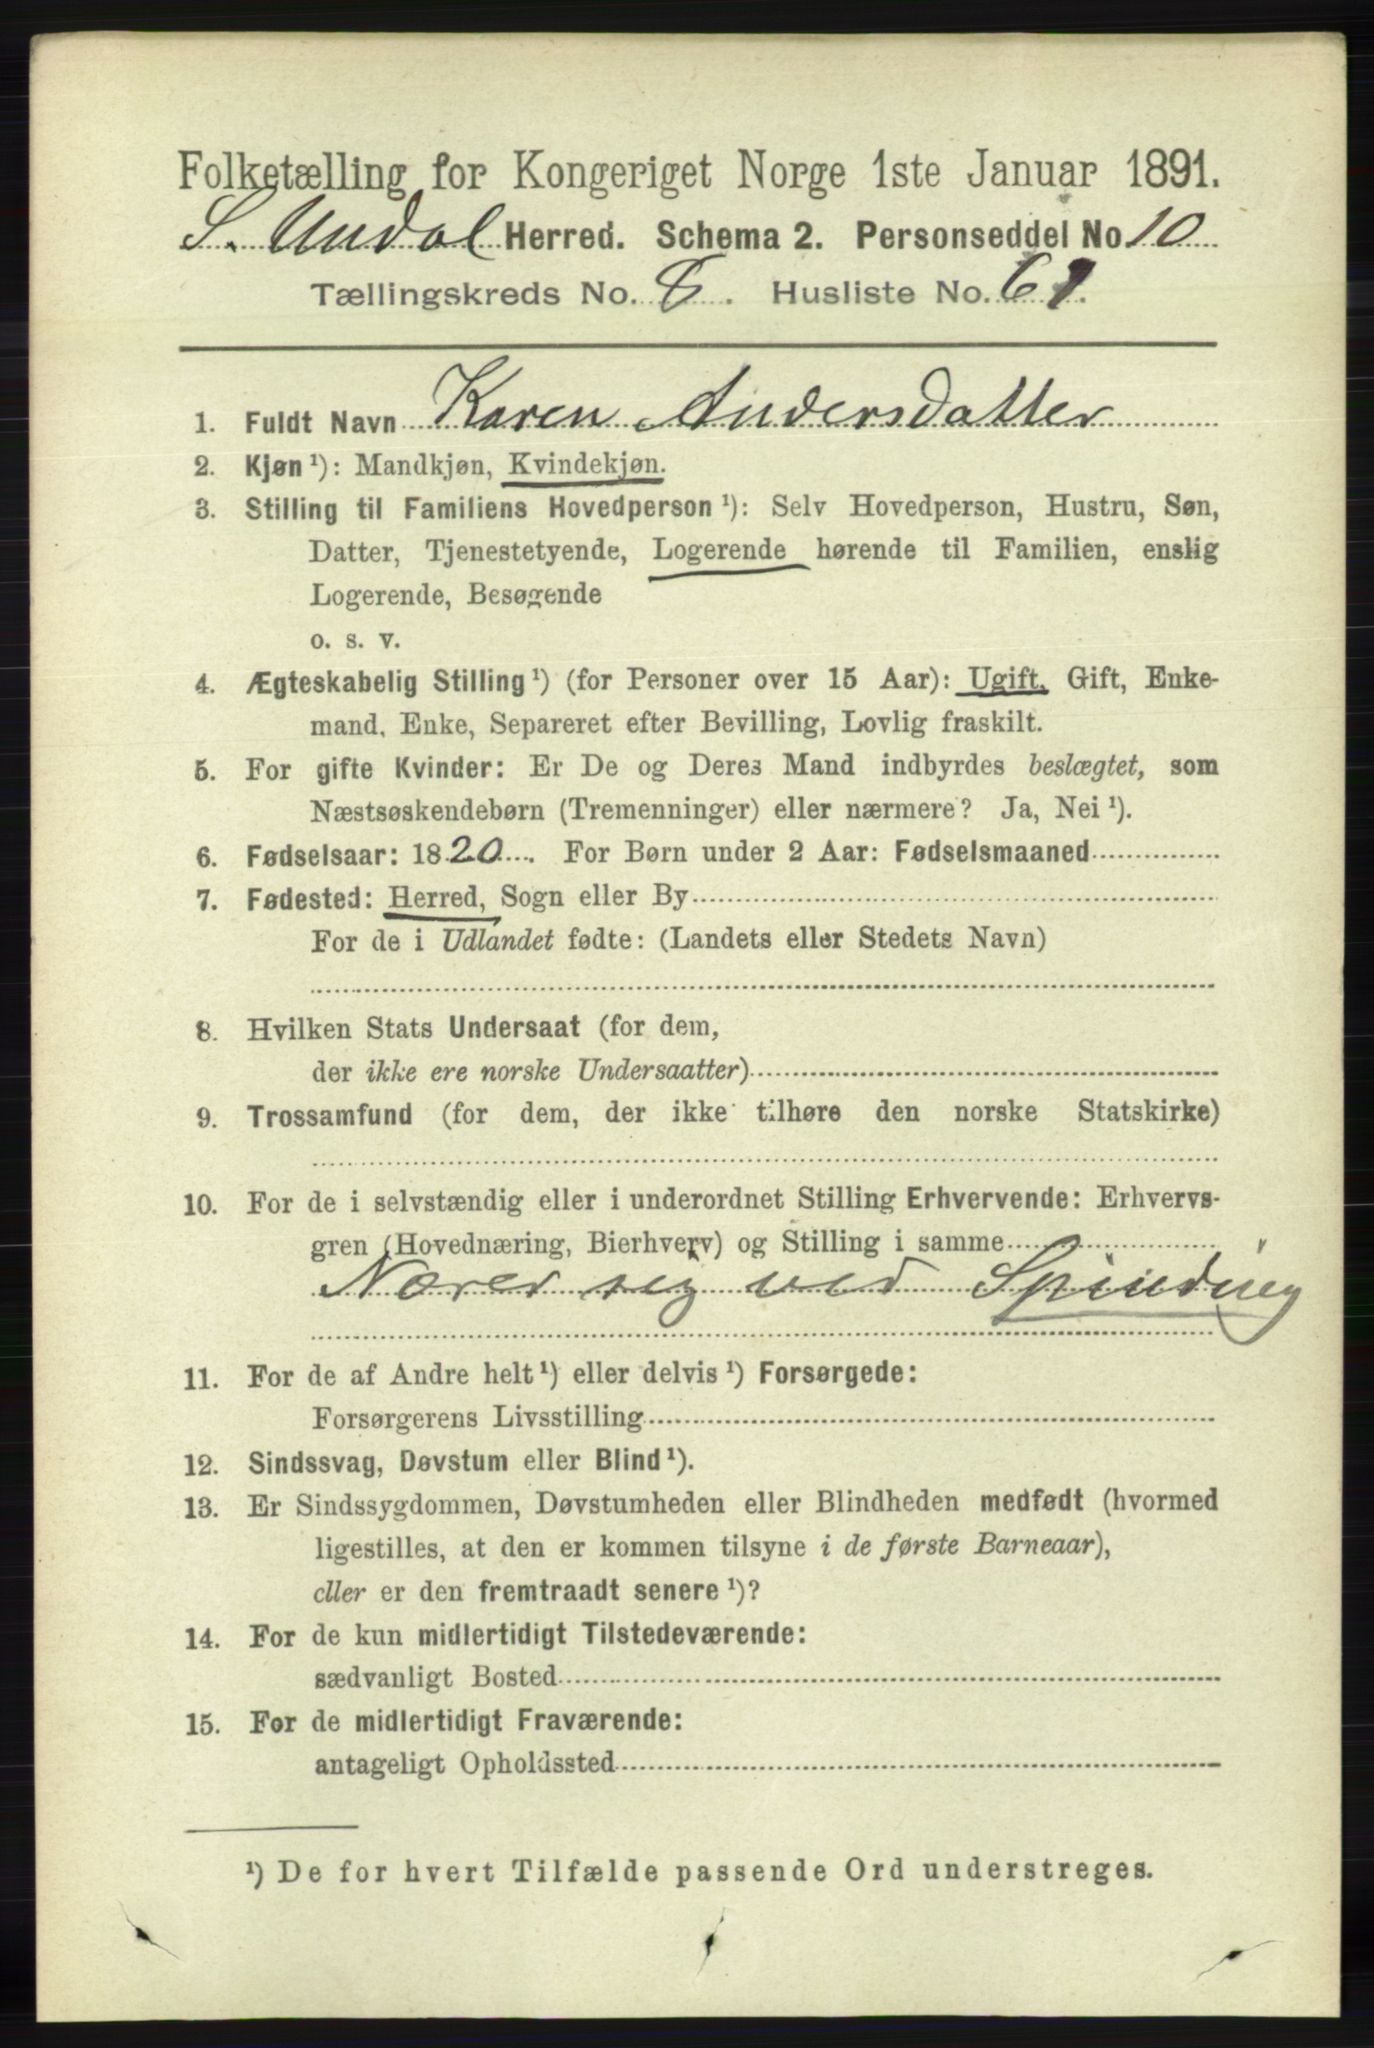 Folketælling for Kongeriget Norge 1ste Januar 1891.
S. Undal Herred. Schema 2. Personseddel No 10
Tællingskreds No. 8. Husliste No. 61.
1. Fuldt Navn Karen Andersdatter
2. Kjøn ¹): Mandkjøn, Kvindekjøn.
3. Stilling til Familiens Hovedperson ¹): Selv Hovedperson, Hustru, Søn,
Datter, Tjenestetyende, Logerende hørende til Familien, enslig
Logerende, Besøgende
o. s. v.
4. Ægteskabelig Stilling ¹) (for Personer over 15 Aar): Ugift, Gift, Enke-
mand, Enke, Separeret efter Bevilling, Lovlig fraskilt.
5. For gifte Kvinder: Er De og Deres Mand indbyrdes beslægtet, som
Næstsøskendebørn (Tremenninger) eller nærmere? Ja, Nei ¹).
6. Fødselsaar: 1820. For Børn under 2 Aar: Fødselsmaaned
7. Fødested: Herred, Sogn eller By
For de i Udlandet fødte: (Landets eller Stedets Navn)
8. Hvilken Stats Undersaat (for dem,
der ikke ere norske Undersaatter)
9. Trossamfund (for dem, der ikke tilhøre den norske Statskirke)
10. For de i selvstændig eller i underordnet Stilling Erhvervende: Erhvervs-
gren (Hovednæring, Bierhverv) og Stilling i samme
Nærer sig ved Spinding
11. For de af Andre helt ¹) eller delvis ¹) Forsørgede:
Forsørgerens Livsstilling
12. Sindssvag, Døvstum eller Blind ¹).
13. Er Sindssygdommen, Døvstumheden eller Blindheden medfødt (hvormed
ligestilles, at den er kommen tilsyne i de første Barneaar),
eller er den fremtraadt senere ¹)?
14. For de kun midlertidigt Tilstedeværende:
sædvanligt Bosted
15. For de midlertidigt Fraværende:
antageligt Opholdssted
¹) De for hvert Tilfælde passende Ord understreges.